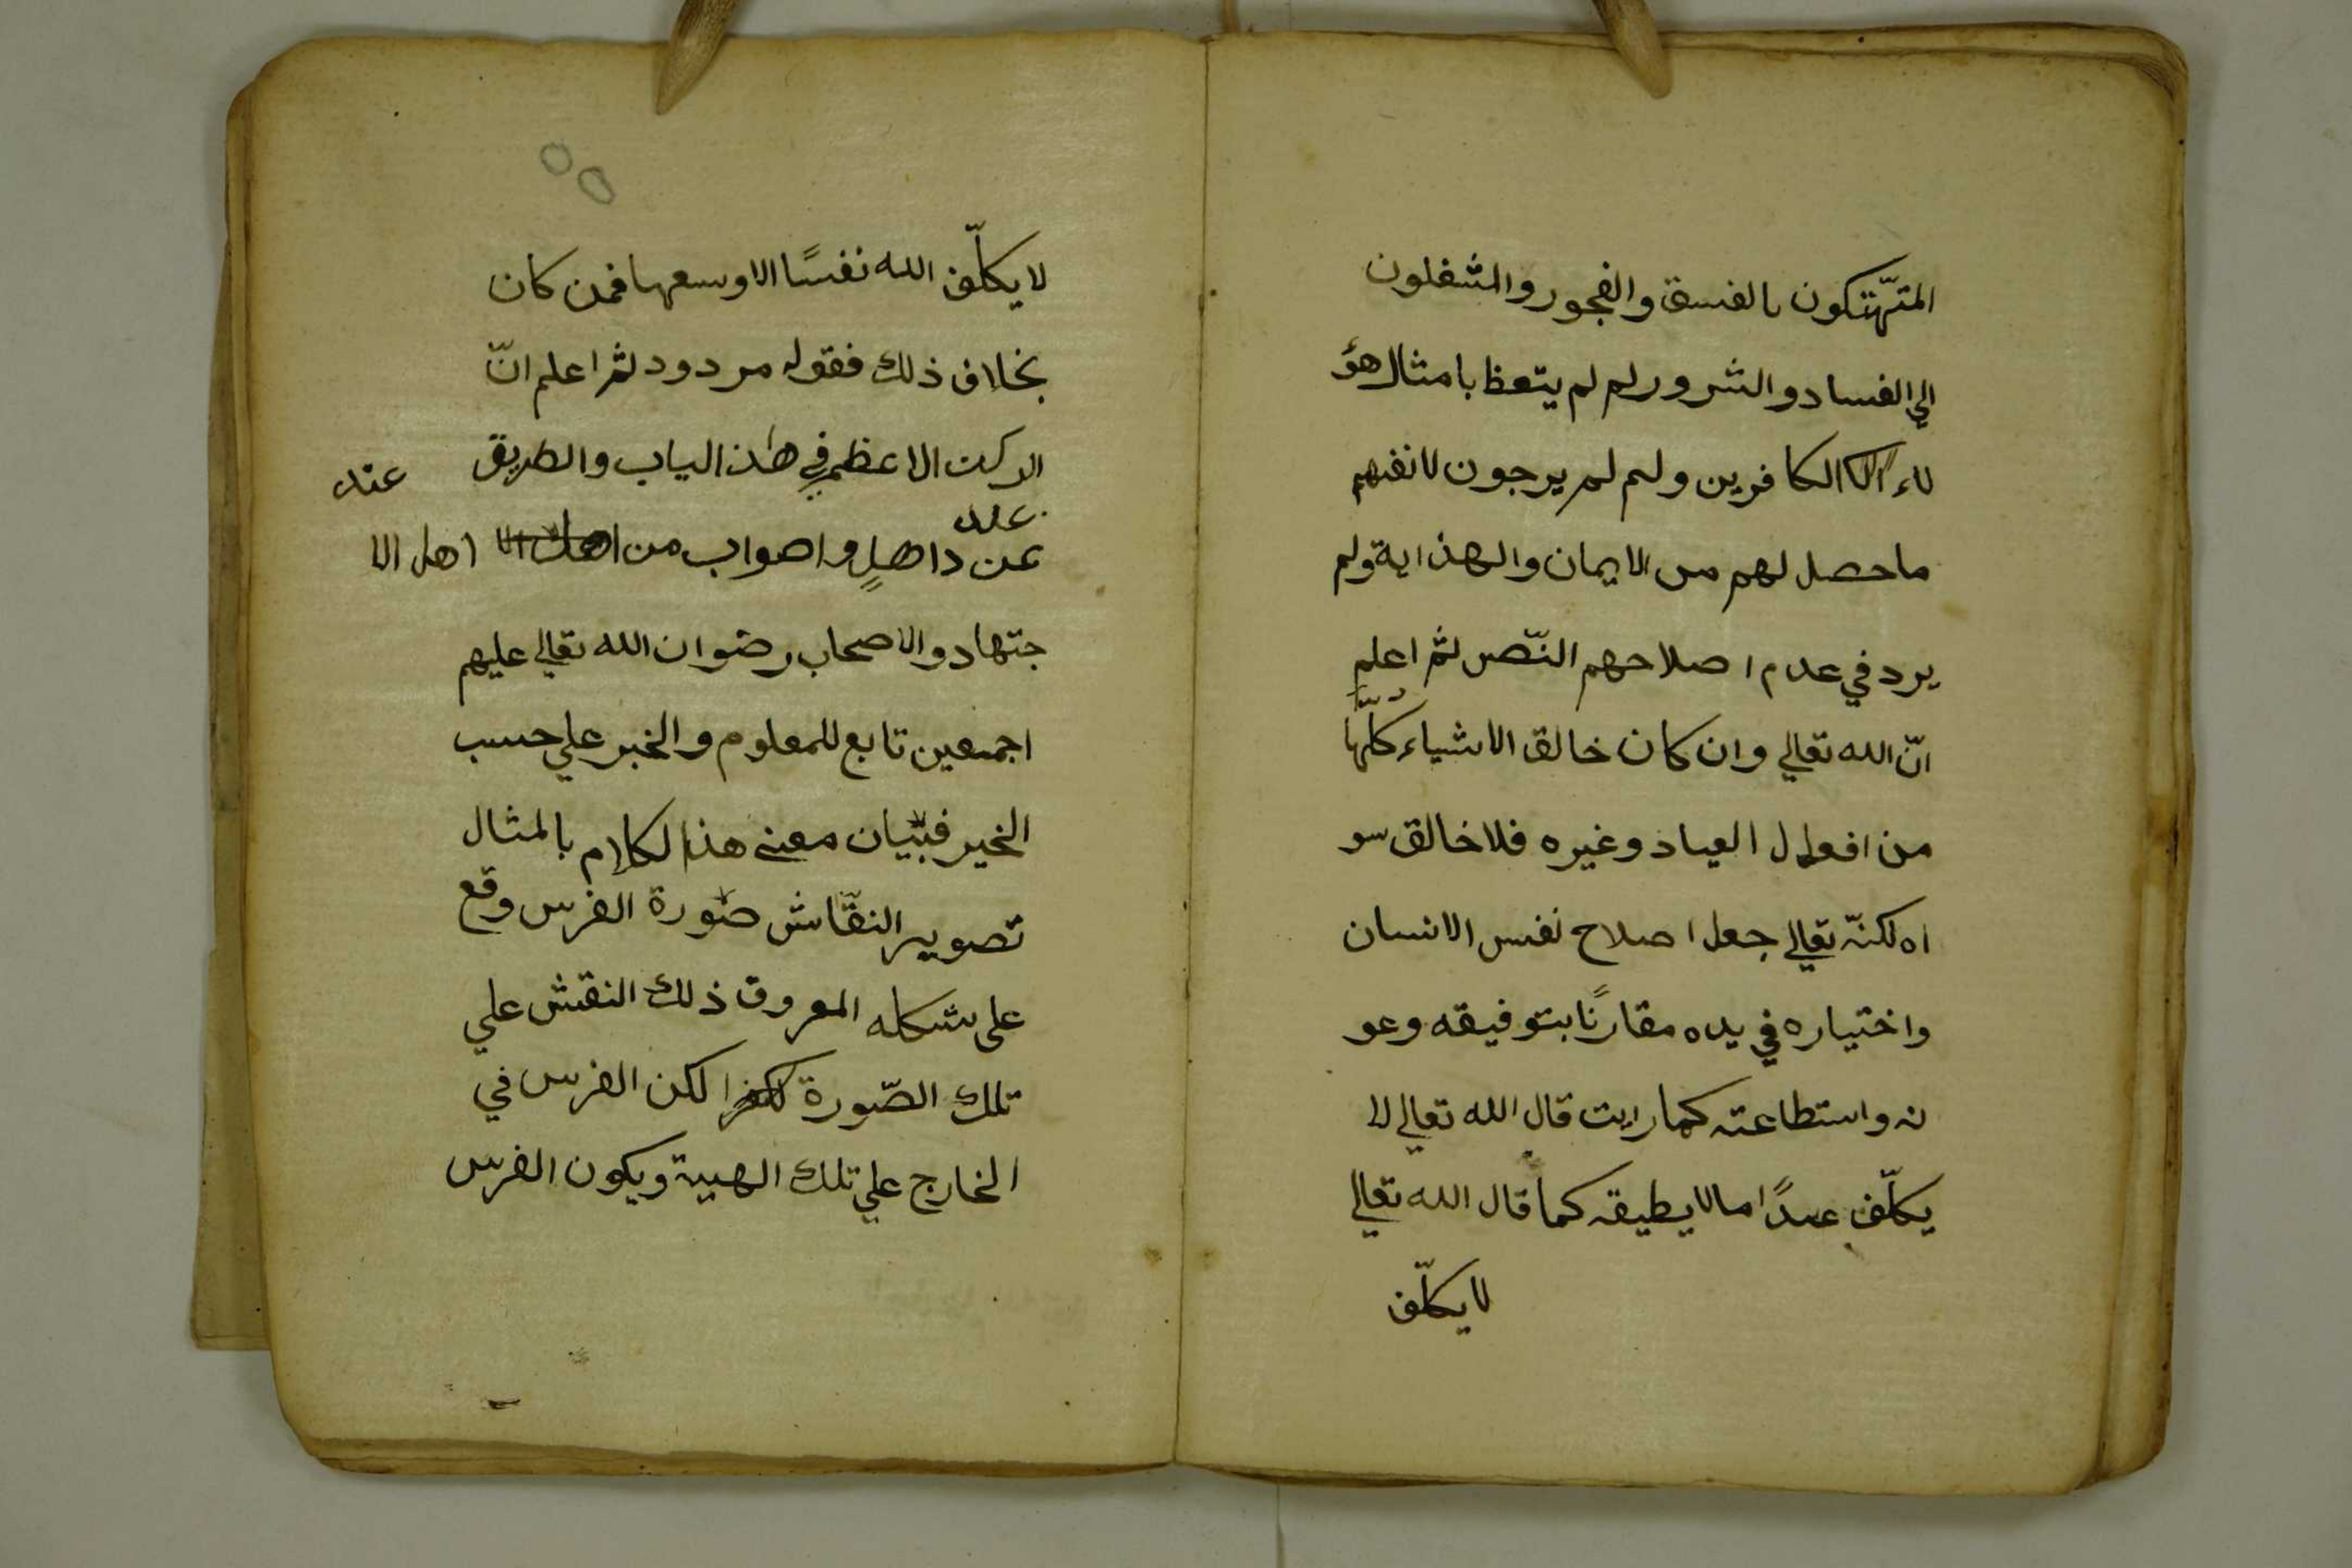 المتهّتكون بالفسق والفجور والمشغلون
الي الفساد والشرور لم لم يتعظ بامثال هؤ
لاء الكافرين ولم لم يرجون لانفهم
ما حصل لهم من الايمان والهذاية ولم
يرد في عدم اصلاحهم النّص ثم اعلم
انّ الله تعالي وان كان خالق الاشياء كلّها
من افعال العباد وغيره فلا خالق سو
اه لكنّه تعالي جعل اصلاح نفس الانسان
واختياره في يده مقارنًا بتوفيقه وعو
نه واستطاعته كما رايت قال الله تعالي لا
يكلّف عبدًا ما لا يطيقه كما قال الله تعالي
لا يكلّف
لا يكلّف الله نفسًا الا وسعها فمن كان
بخلاف ذلك فقوله مردود ثم اعلم انّ
الركن الاعظم في هذ الباب والطريق عند
من اهل الا
جتهاد والاصحاب رضوان الله تعالي عليهم
اجمعين تابع للمعلوم والخبر علي حسب
الخير فبّيان معني هذا لكلام بالمثال
تصوير النقّاش صورة الفرس وقع
على شكله المعروف ذلك النقش علي
تلك الصّورة لكن الفرس في
الخارج علي تلك الهيية ويكون الفرس